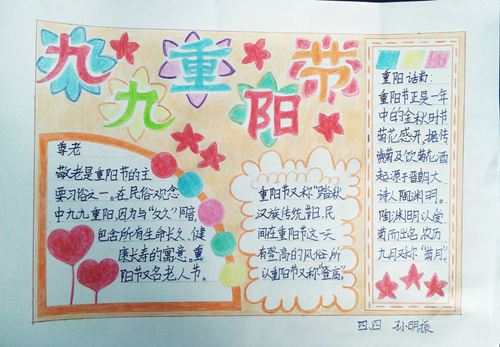 九九重阳节
尊老
敬老是重阳节的主
要习俗之一。在民俗观念
中九九重阳,因为与“久久”同音,
包含所有生命长久、健
康长寿的寓意。重
阳节又名老人节。
重阳节又称“踏秋”
汉族传统节日,民
间在重阳节这一天
有登高的风俗,所
以重阳节又称“登高”。
重阳话菊:
重阳节正是一年
中的金秋时节
菊花盛开,据传
赏菊及饮菊花酒
起源于晋朝大
诗人陶渊明。
陶渊明以爱
菊而出名,农历
九月又称“菊月”。
四四 孙明振